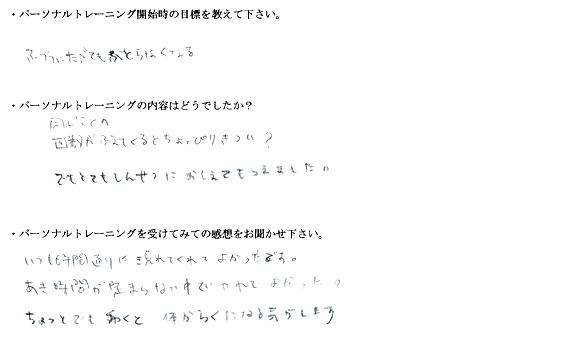 ・パーソナルトレーニング開始時の目標を教えて下さい。
ふつうにたべても太らなくなる
・パーソナルトレーニングの内容はどうでしたか？
同じことの
回数がふえてくるとちょっぴりきつい？
でもとてもしんせつにおしえてもらえました。
・パーソナルトレーニングを受けてみての感想をお聞かせ下さい。
いつも時間通りに現れてくれてよかったです。
あき時間が定まらない中でやれてよかった。
ちょっとでも動くと 体がらくになる気がします